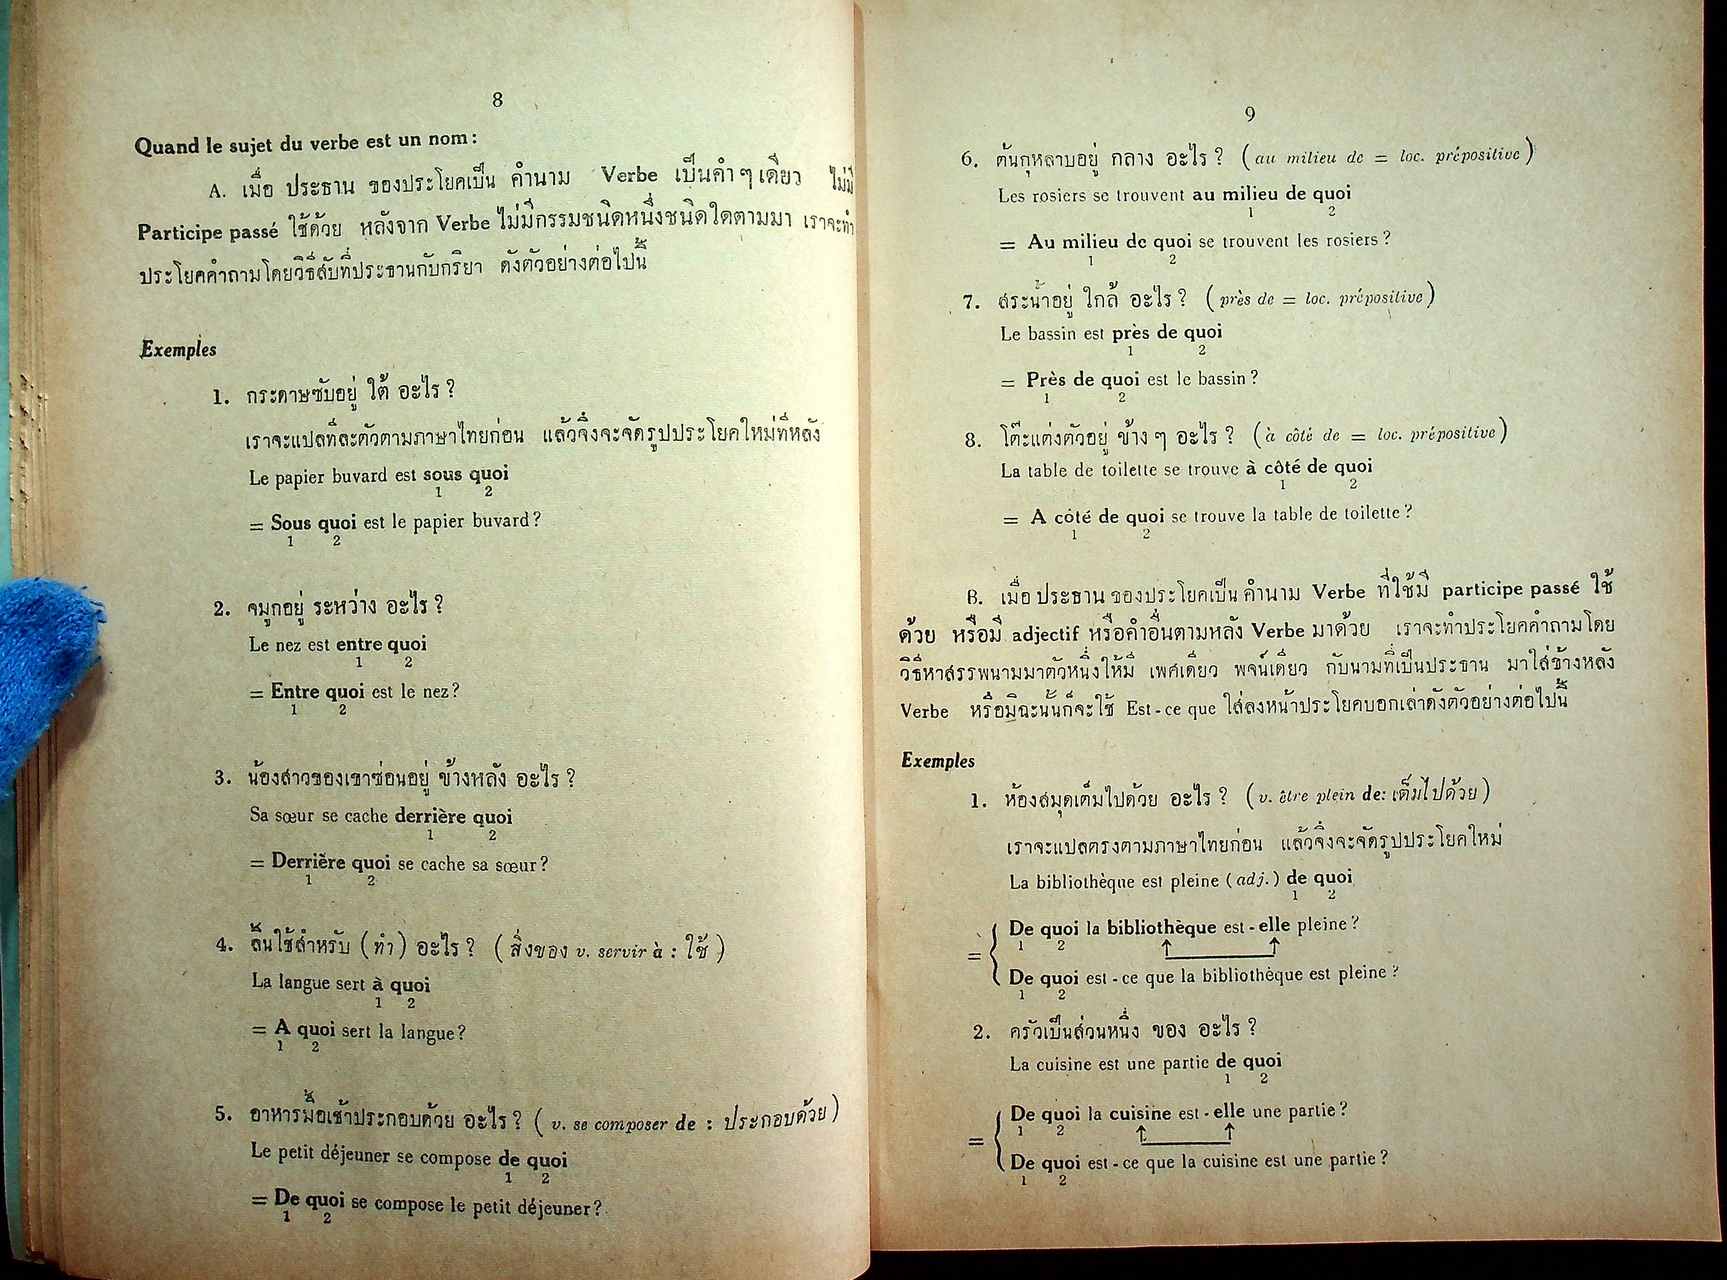 8
Quand le sujet du verbe est un nom :
A. เมื่อ ประธาน ของประโยคเป็น คำนาม Verbe เป็นคำ ๆ เดียว ไม่มี
Participe passé ใช้ด้วย หลังจาก Verbe ไม่มีกรรมชนิดหนึ่งชนิดใดตามมา เราจะทำ
ประโยคคำถามโดยวิธีสับที่ประธานกับกริยา ดังตัวอย่างต่อไปนี้
Exemples
1. กระดาษซับอยู่ ใต้ อะไร ?
เราจะแปลทีละตัวตามภาษาไทยก่อน แล้วจึงจะจัดรูปประโยคใหม่ทีหลัง
Le papier buvard est sous quoi
1 2
= Sous quoi est le papier buvard ?
1 2
2. จมูกอยู่ ระหว่าง อะไร ?
Le nez est entre quoi
1 2
= Entre quoi est le nez ?
1 2
3. น้องสาวของเขาซ่อนอยู่ ข้างหลัง อะไร ?
Sa sœur se cache derrière quoi
1 2
= Derrière quoi se cache sa sœur ?
1 2
4. ลิ้นใช้สำหรับ (ทำ) อะไร ? (สิ่งของ v. servir à : ใช้)
La langue sert à quoi
1 2
= A quoi sert la langue ?
1 2
5. อาหารมื้อเช้าประกอบด้วย อะไร ? (v. se composer de : ประกอบด้วย)
Le petit déjeuner se compose de quoi
1 2
= De quoi se compose le petit déjeuner ?
1 2
9
6. ต้นกุหลาบอยู่ กลาง อะไร ? (au milieu de = loc. prépositive)
Les rosiers se trouvent au milieu de quoi
1 2
= Au milieu de quoi se trouvent les rosiers ?
1 2
7. สระน้ำอยู่ ใกล้ อะไร ? (près de = loc. prépositive)
Le bassin est près de quoi
1 2
= Près de quoi est le bassin ?
1 2
8. โต๊ะแต่งตัวอยู่ ข้าง ๆ อะไร ? (à côté de = loc. prépositive)
La table de toilette se trouve à côté de quoi
1 2
= A côté de quoi se trouve la table de toilette ?
1 2
B. เมื่อ ประธาน ของประโยคเป็น คำนาม Verbe ที่ใช้มี participe passé ใช้
ด้วย หรือมี adjectif หรือคำอื่นตามหลัง Verbe มาด้วย เราจะทำประโยคคำถามโดย
วิธีหาสรรพนามมาตัวหนึ่งให้มี เพศเดียว พจน์เดียว กับนามที่เป็นประธาน มาใส่ข้างหลัง
Verbe หรือมิฉะนั้นก็จะใช้ Est-ce que ใส่ลงหน้าประโยคบอกเล่าดังตัวอย่างต่อไปนี้
Exemples
1. ห้องสมุดเต็มไปด้วย อะไร ? (v. être plein de: เต็มไปด้วย)
เราจะแปลตรงตามภาษาไทยก่อน แล้วจึงจะจัดรูปประโยคใหม่
La bibliothèque est pleine (adj.) de quoi
1 2
De quoi la bibliothèque est-elle pleine ?
1 2
=
De quoi est-ce que la bibliothèque est pleine ?
1 2
2. ครัวเป็นส่วนหนึ่ง ของ อะไร ?
La cuisine est une partie de quoi
1 2
De quoi la cuisine est-elle une partie ?
1 2
=
De quoi est-ce que la cuisine est une partie ?
1 2